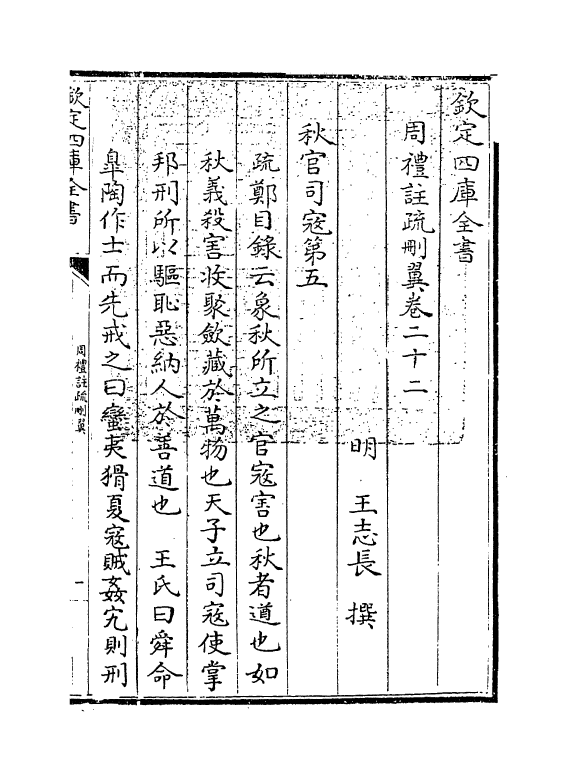 欽定四庫全書
周禮註疏刪翼卷二十二
明 王志長 撰
秋官司寇第五
疏鄭目錄云象秋所立之官寇害也秋者遒也如
秋義殺害收聚斂藏於萬物也天子立司寇使掌
邦刑所以驅恥惡納人於善道也 王氏曰舜命
臯陶作士而先戒之曰蠻夷猾夏寇賊姦宄則刑
欽定四庫全書
周禮註疏刪翼
一